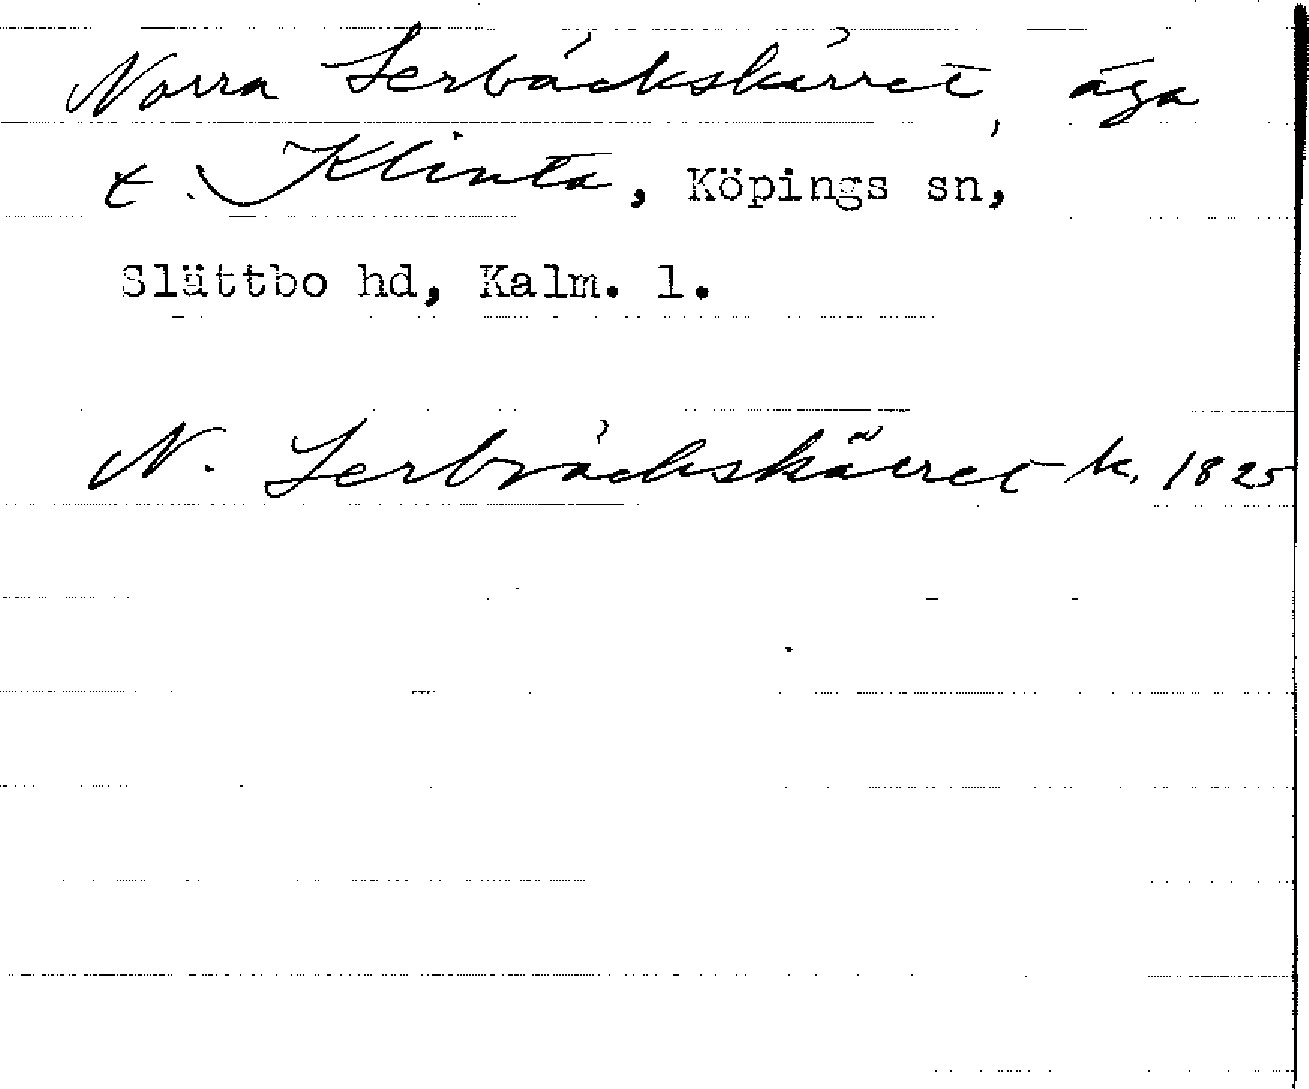 Norra Lerbäckskärret, äga
t. Klinta, Köpings sn,
Slättbo hd, Kalm. l.
N. Lerbräckskärret k. 1825